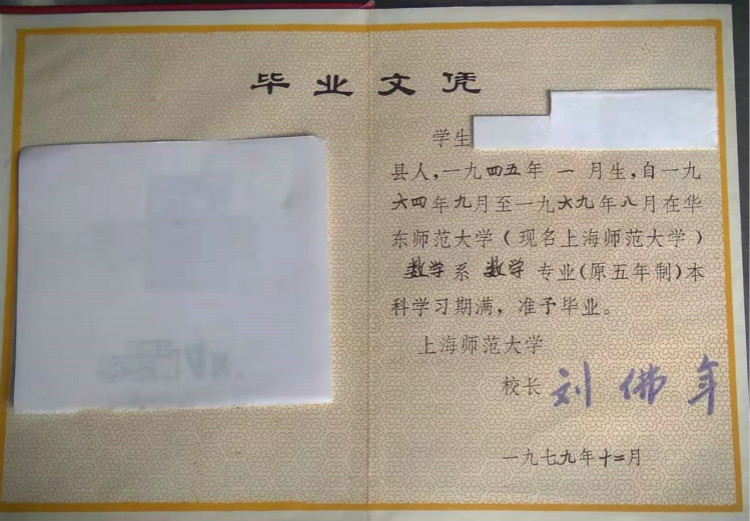 毕业文凭
学生
县人,一九四五年 一 月生,自一九
六四年九月至一九六九年八月在华
东师范大学(现名上海师范大学)
数学系 数学 专业(原五年制)本
科学习期满,准予毕业。
上海师范大学
校长 刘佛年
一九七九年十二月